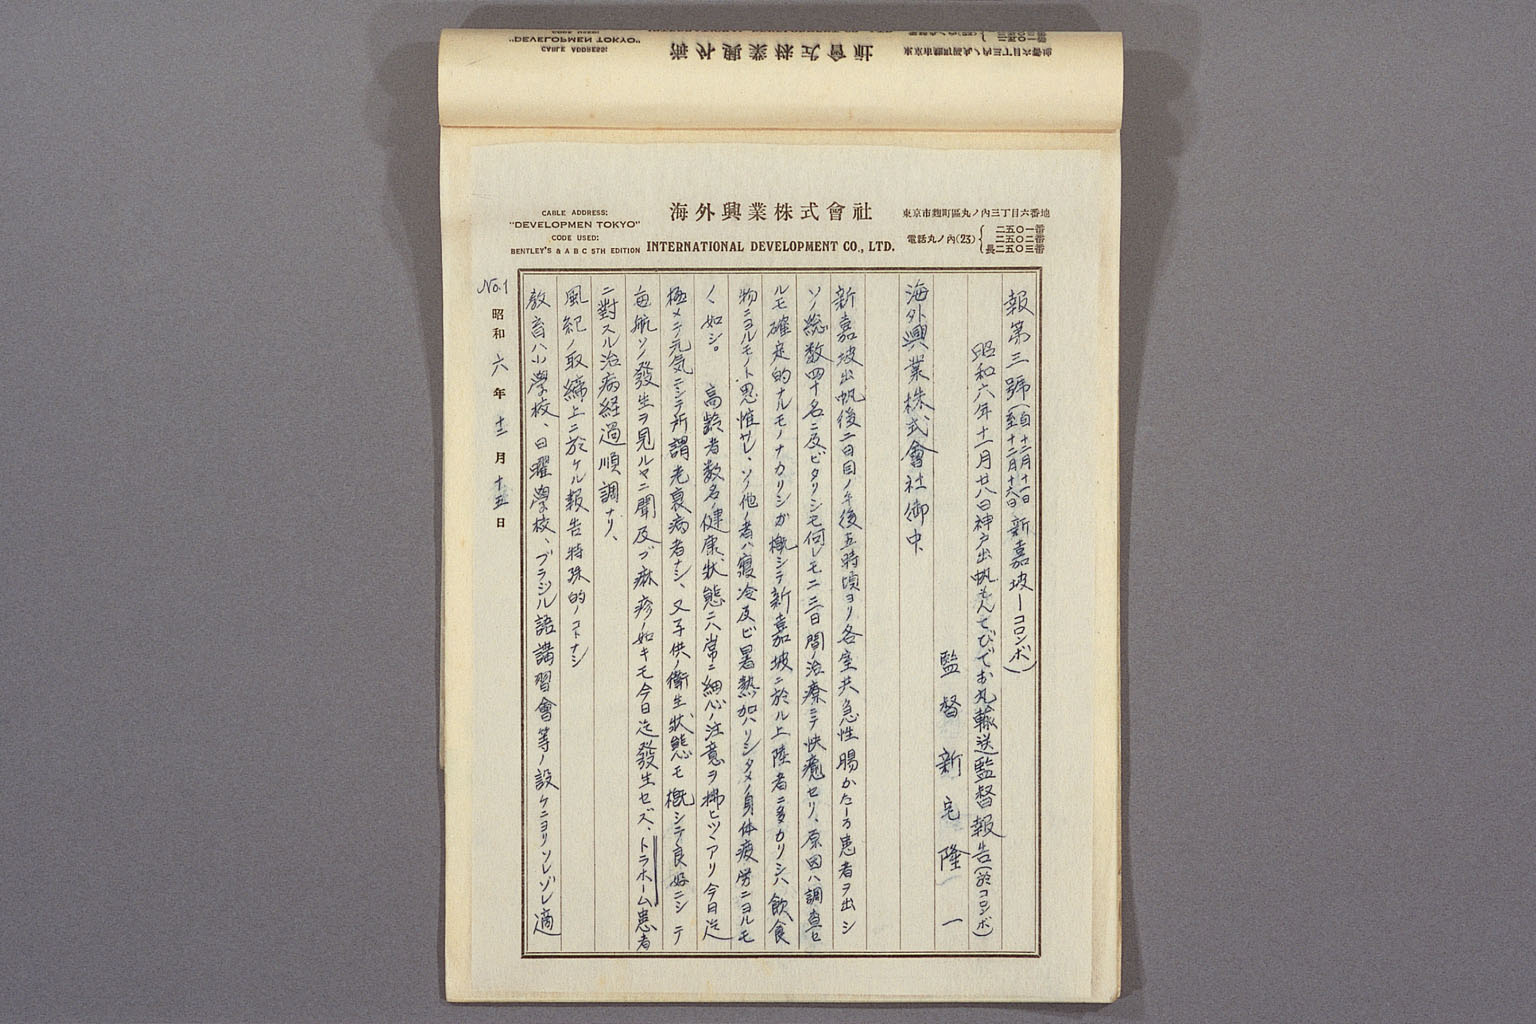 CABLE ADDRESS:
"DEVELOPMEN TOKYO"
CODE USED:
BENTLEY'S & A B C 5TH EDITION
海外興業株式會社
INTERNATIONAL DEVELOPMENT CO., LTD.
東京市麴町區丸ノ內三丁目六番地
電話丸ノ內(23)
二五〇一番
二五〇二番
長二五〇三番
報第三號(自十二月十一日至十二月十六日新嘉坡ーコロンボ)
昭和六年十一月廿八日神戸出帆もんてびでお丸輸送監督報告(於コロンボ)
監督新宅隆一
海外興業株式會社御中
新嘉坡出帆後二日目ノ午後五時頃ヨリ各室共急性腸かたーる患者ヲ出シ
ソノ総数四十名ニ及ビタリシモ何レモ二三日間ノ治療ニテ快癒セリ、原因ハ調査セ
ルモ確定的ナルモノナカリシガ概シテ新嘉坡ニ於ル上陸者ニ多カリシハ飲食
物ニヨルモノト思惟サレ、ソノ他ノ者ハ寝冷及ビ暑熱加ハリシタメノ身体疲労ニヨルモ
ノヽ如シ。 高齢者数名ノ健康状態ニハ常ニ細心ノ注意ヲ拂ヒツヽアリ今日迄
極メテ元気ニシテ所謂老衰病者ナシ、又子供ノ衛生状態モ概シテ良好ニシテ
毎航ソノ發生ヲ見ルヤニ聞及ブ麻疹ノ如キモ今日迄發生セズ、トラホーム患者
ニ對スル治病経過順調ナリ、
風紀ノ取締上ニ於ケル報告特殊的ノコトナシ
教育ハ小學校、日曜學校、ブラジル語講習會等ノ設ケニヨリソレゾレ適
No.1
昭和六年十二月十五日